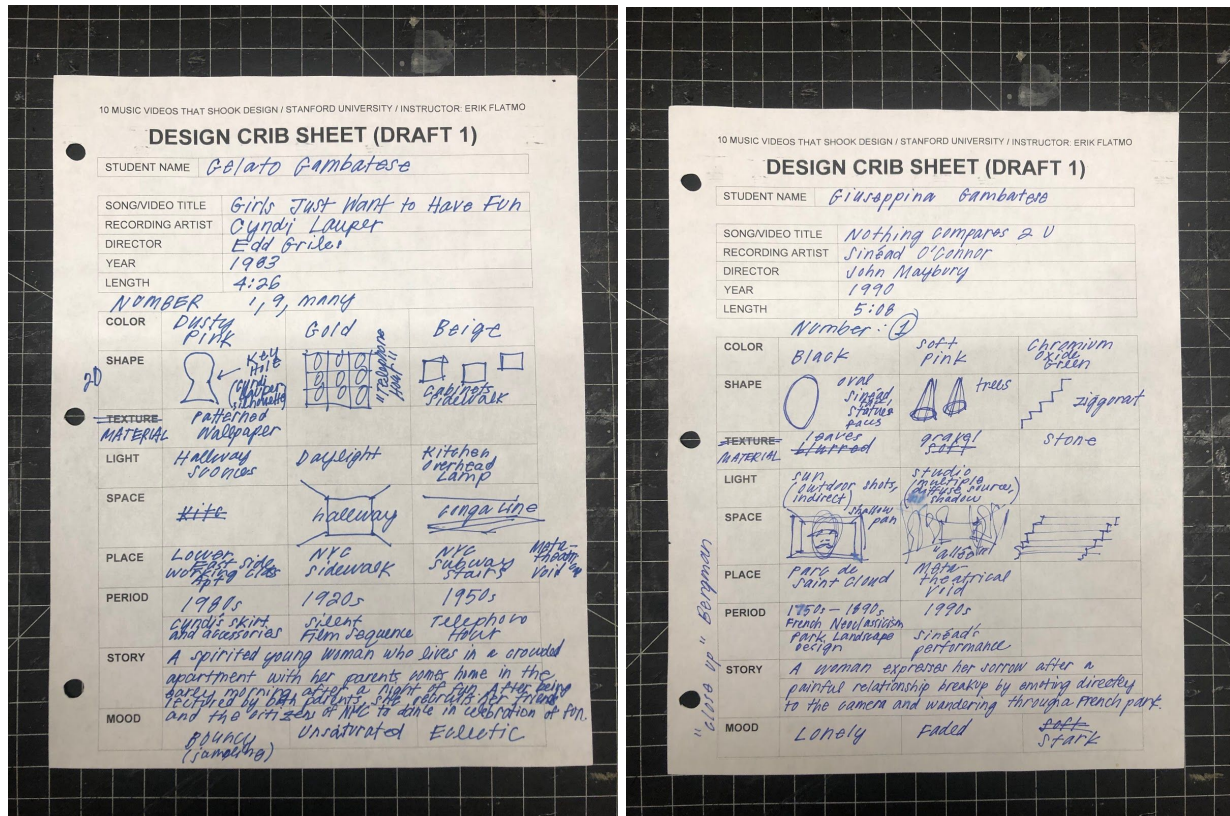 10 MUSIC VIDEOS THAT SHOOK DESIGN / STANFORD UNIVERSITY / INSTRUCTOR: ERIK FLATMO
DESIGN CRIB SHEET (DRAFT 1)
STUDENT NAME Gelato Gambatese
SONG/VIDEO TITLE Girls Just Want to Have Fun
RECORDING ARTIST Cyndi Lauper
DIRECTOR Edd Griles
YEAR 1983
LENGTH 4:26
NUMBER 1, 9, many
COLOR Dusty Pink Gold Beige
SHAPE Key Hole (Cyndi Lauper silhouette) "Telephone Hour" !! Cabinets Sidewalk
20
TEXTURE Patterned
MATERIAL Wallpaper
LIGHT Hallway Sconces Daylight Kitchen Overhead Lamp
SPACE hallway Conga Line
PLACE Lower East Side Working Class Apt NYC Sidewalk NYC Subway Stairs Meta-theatrical Void
PERIOD 1980s 1920s 1950s
Cyndi's skirt and accessories Silent Film Sequence Telephone Hour
STORY A spirited young woman who lives in a crowded
apartment with her parents comes home in the
early morning after a night of fun. After being
lectured by both parents, she recruits her friends
and the citizens of NYC to dance in celebration of fun.
MOOD Bouncy (sampling) Unsaturated Eclectic
10 MUSIC VIDEOS THAT SHOOK DESIGN / STANFORD UNIVERSITY / INSTRUCTOR: ERIK FLATMO
DESIGN CRIB SHEET (DRAFT 1)
STUDENT NAME Giuseppina Gambatese
SONG/VIDEO TITLE Nothing Compares 2 U
RECORDING ARTIST Sinéad O'Connor
DIRECTOR John Maybury
YEAR 1990
LENGTH 5:08
Number: 1
COLOR Black Soft Pink Chromium Oxide Green
SHAPE oval Sinéad statues faces trees ziggorat
TEXTURE leaves gravel stone
MATERIAL blurred soft
LIGHT sun (outdoor shots, indirect) studio (multiple diffuse source, shadow)
SPACE shallow pan
PLACE Parc de Saint Cloud Meta-theatrical Void
PERIOD 1950s-1890s French Neoclassicism Park Landscape Design 1990s Sinéad's performance
STORY A woman expresses her sorrow after a
painful relationship breakup by emoting directly
to the camera and wandering through a French park.
MOOD Lonely Faded Soft Stark
"close up" Bergman